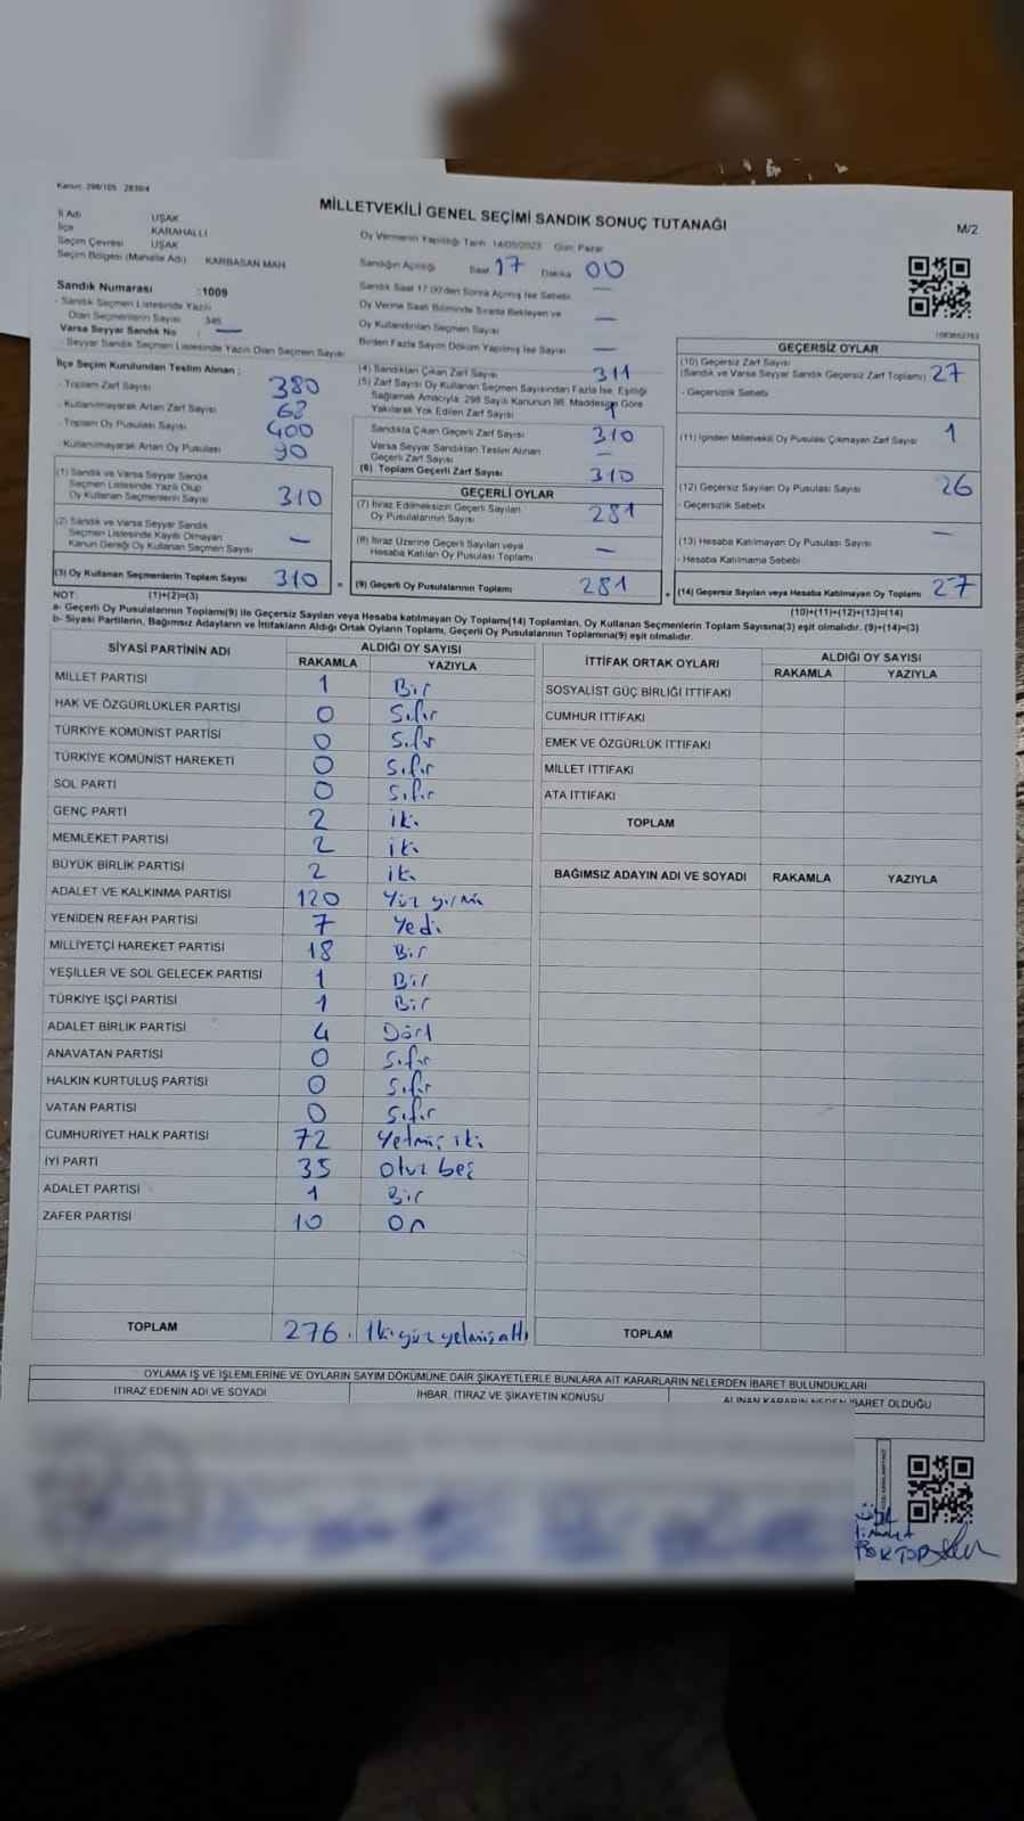 Kanun: 298/105 2839/4
MİLLETVEKİLİ GENEL SEÇİMİ SANDIK SONUÇ TUTANAĞI
M/2
İl Adı UŞAK
İlçe KARAHALLI
Seçim Çevresi UŞAK
Seçim Bölgesi (Mahalle Adı) KARBASAN MAH
Oy Vermenin Yapıldığı Tarih 14/05/2023 Gün: Pazar
Sandığın Açılışı Saat 17 Dakika 00
Sandık Saat 17.00'den Sonra Açılmış İse Sebebi —
Oy Verme Saati Bitiminde Sırada Bekleyen ve
Oy Kullandırılan Seçmen Sayısı —
Birden Fazla Sayım Döküm Yapılmış İse Sayısı —
Sandık Numarası :1009
- Sandık Seçmen Listesinde Yazılı
Olan Seçmenlerin Sayısı 345
Varsa Seyyar Sandık No : —
- Seyyar Sandık Seçmen Listesinde Yazılı Olan Seçmen Sayısı
İlçe Seçim Kurulundan Teslim Alınan :
- Toplam Zarf Sayısı 380
- Kullanılmayarak Artan Zarf Sayısı
- Toplam Oy Pusulası Sayısı 400
- Kullanılmayarak Artan Oy Pusulası 90
(1) Sandık ve Varsa Seyyar Sandık
Seçmen Listesinde Yazılı Olup
Oy Kullanan Seçmenlerin Sayısı 310
(2) Sandık ve Varsa Seyyar Sandık
Seçmen Listesinde Kayıtlı Olmayan
Kanun Gereği Oy Kullanan Seçmen Sayısı —
(3) Oy Kullanan Seçmenlerin Toplam Sayısı 310
(4) Sandıktan Çıkan Zarf Sayısı 311
(5) Zarf Sayısı Oy Kullanan Seçmen Sayısından Fazla İse, Eşitliği
Sağlamak Amacıyla; 298 Sayılı Kanunun 98. Maddesine Göre
Yakılarak Yok Edilen Zarf Sayısı 1
Sandıkta Çıkan Geçerli Zarf Sayısı 310
Varsa Seyyar Sandıktan Teslim Alınan
Geçerli Zarf Sayısı —
(6) Toplam Geçerli Zarf Sayısı 310
GEÇERLİ OYLAR
(7) İtiraz Edilmeksizin Geçerli Sayılan
Oy Pusulalarının Sayısı 281
(8) İtiraz Üzerine Geçerli Sayılan veya
Hesaba Katılan Oy Pusulası Toplamı —
= (9) Geçerli Oy Pusulalarının Toplamı 281
GEÇERSİZ OYLAR
(10) Geçersiz Zarf Sayısı
(Sandık ve Varsa Seyyar Sandık Geçersiz Zarf Toplamı) 27
- Geçersizlik Sebebi
(11) İçinden Milletvekili Oy Pusulası Çıkmayan Zarf Sayısı 1
(12) Geçersiz Sayılan Oy Pusulası Sayısı 26
- Geçersizlik Sebebi
(13) Hesaba Katılmayan Oy Pusulası Sayısı —
- Hesaba Katılmama Sebebi
+ (14) Geçersiz Sayılan veya Hesaba Katılmayan Oy Toplamı 27
NOT: (1)+(2)=(3) (10)+(11)+(12)+(13)=(14)
a- Geçerli Oy Pusulalarının Toplamı(9) ile Geçersiz Sayılan veya Hesaba katılmayan Oy Toplamı(14) Toplamları, Oy Kullanan Seçmenlerin Toplam Sayısına(3) eşit olmalıdır. (9)+(14)=(3)
b- Siyasi Partilerin, Bağımsız Adayların ve İttifakların Aldığı Ortak Oyların Toplamı, Geçerli Oy Pusulalarının Toplamına(9) eşit olmalıdır.
SİYASİ PARTİNİN ADI ALDIĞI OY SAYISI
RAKAMLA YAZIYLA
MİLLET PARTİSİ 1 Bir
HAK VE ÖZGÜRLÜKLER PARTİSİ 0 Sıfır
TÜRKİYE KOMÜNİST PARTİSİ 0 Sıfır
TÜRKİYE KOMÜNİST HAREKETİ 0 Sıfır
SOL PARTİ 0 Sıfır
GENÇ PARTİ 2 iki
MEMLEKET PARTİSİ 2 iki
BÜYÜK BİRLİK PARTİSİ 2 iki
ADALET VE KALKINMA PARTİSİ 120 Yüz yirmi
YENİDEN REFAH PARTİSİ 7 Yedi
MİLLİYETÇİ HAREKET PARTİSİ 18 Bir
YEŞİLLER VE SOL GELECEK PARTİSİ 1 Bir
TÜRKİYE İŞÇİ PARTİSİ 1 Bir
ADALET BİRLİK PARTİSİ 4 Dört
ANAVATAN PARTİSİ 0 Sıfır
HALKIN KURTULUŞ PARTİSİ 0 Sıfır
VATAN PARTİSİ 0 Sıfır
CUMHURİYET HALK PARTİSİ 72 Yetmiş iki
İYİ PARTİ 35 Otuz beş
ADALET PARTİSİ 1 Bir
ZAFER PARTİSİ 10 On
TOPLAM 276 . İkiyüz yetmişaltı
İTTİFAK ORTAK OYLARI ALDIĞI OY SAYISI
RAKAMLA YAZIYLA
SOSYALİST GÜÇ BİRLİĞİ İTTİFAKI
CUMHUR İTTİFAKI
EMEK VE ÖZGÜRLÜK İTTİFAKI
MİLLET İTTİFAKI
ATA İTTİFAKI
TOPLAM
BAĞIMSIZ ADAYIN ADI VE SOYADI RAKAMLA YAZIYLA
TOPLAM
OYLAMA İŞ VE İŞLEMLERİNE VE OYLARIN SAYIM DÖKÜMÜNE DAİR ŞİKAYETLERLE BUNLARA AİT KARARLARIN NELERDEN İBARET BULUNDUKLARI
İTİRAZ EDENİN ADI VE SOYADI İHBAR, İTİRAZ VE ŞİKAYETİN KONUSU ALINAN KARARIN NEDEN İBARET OLDUĞU